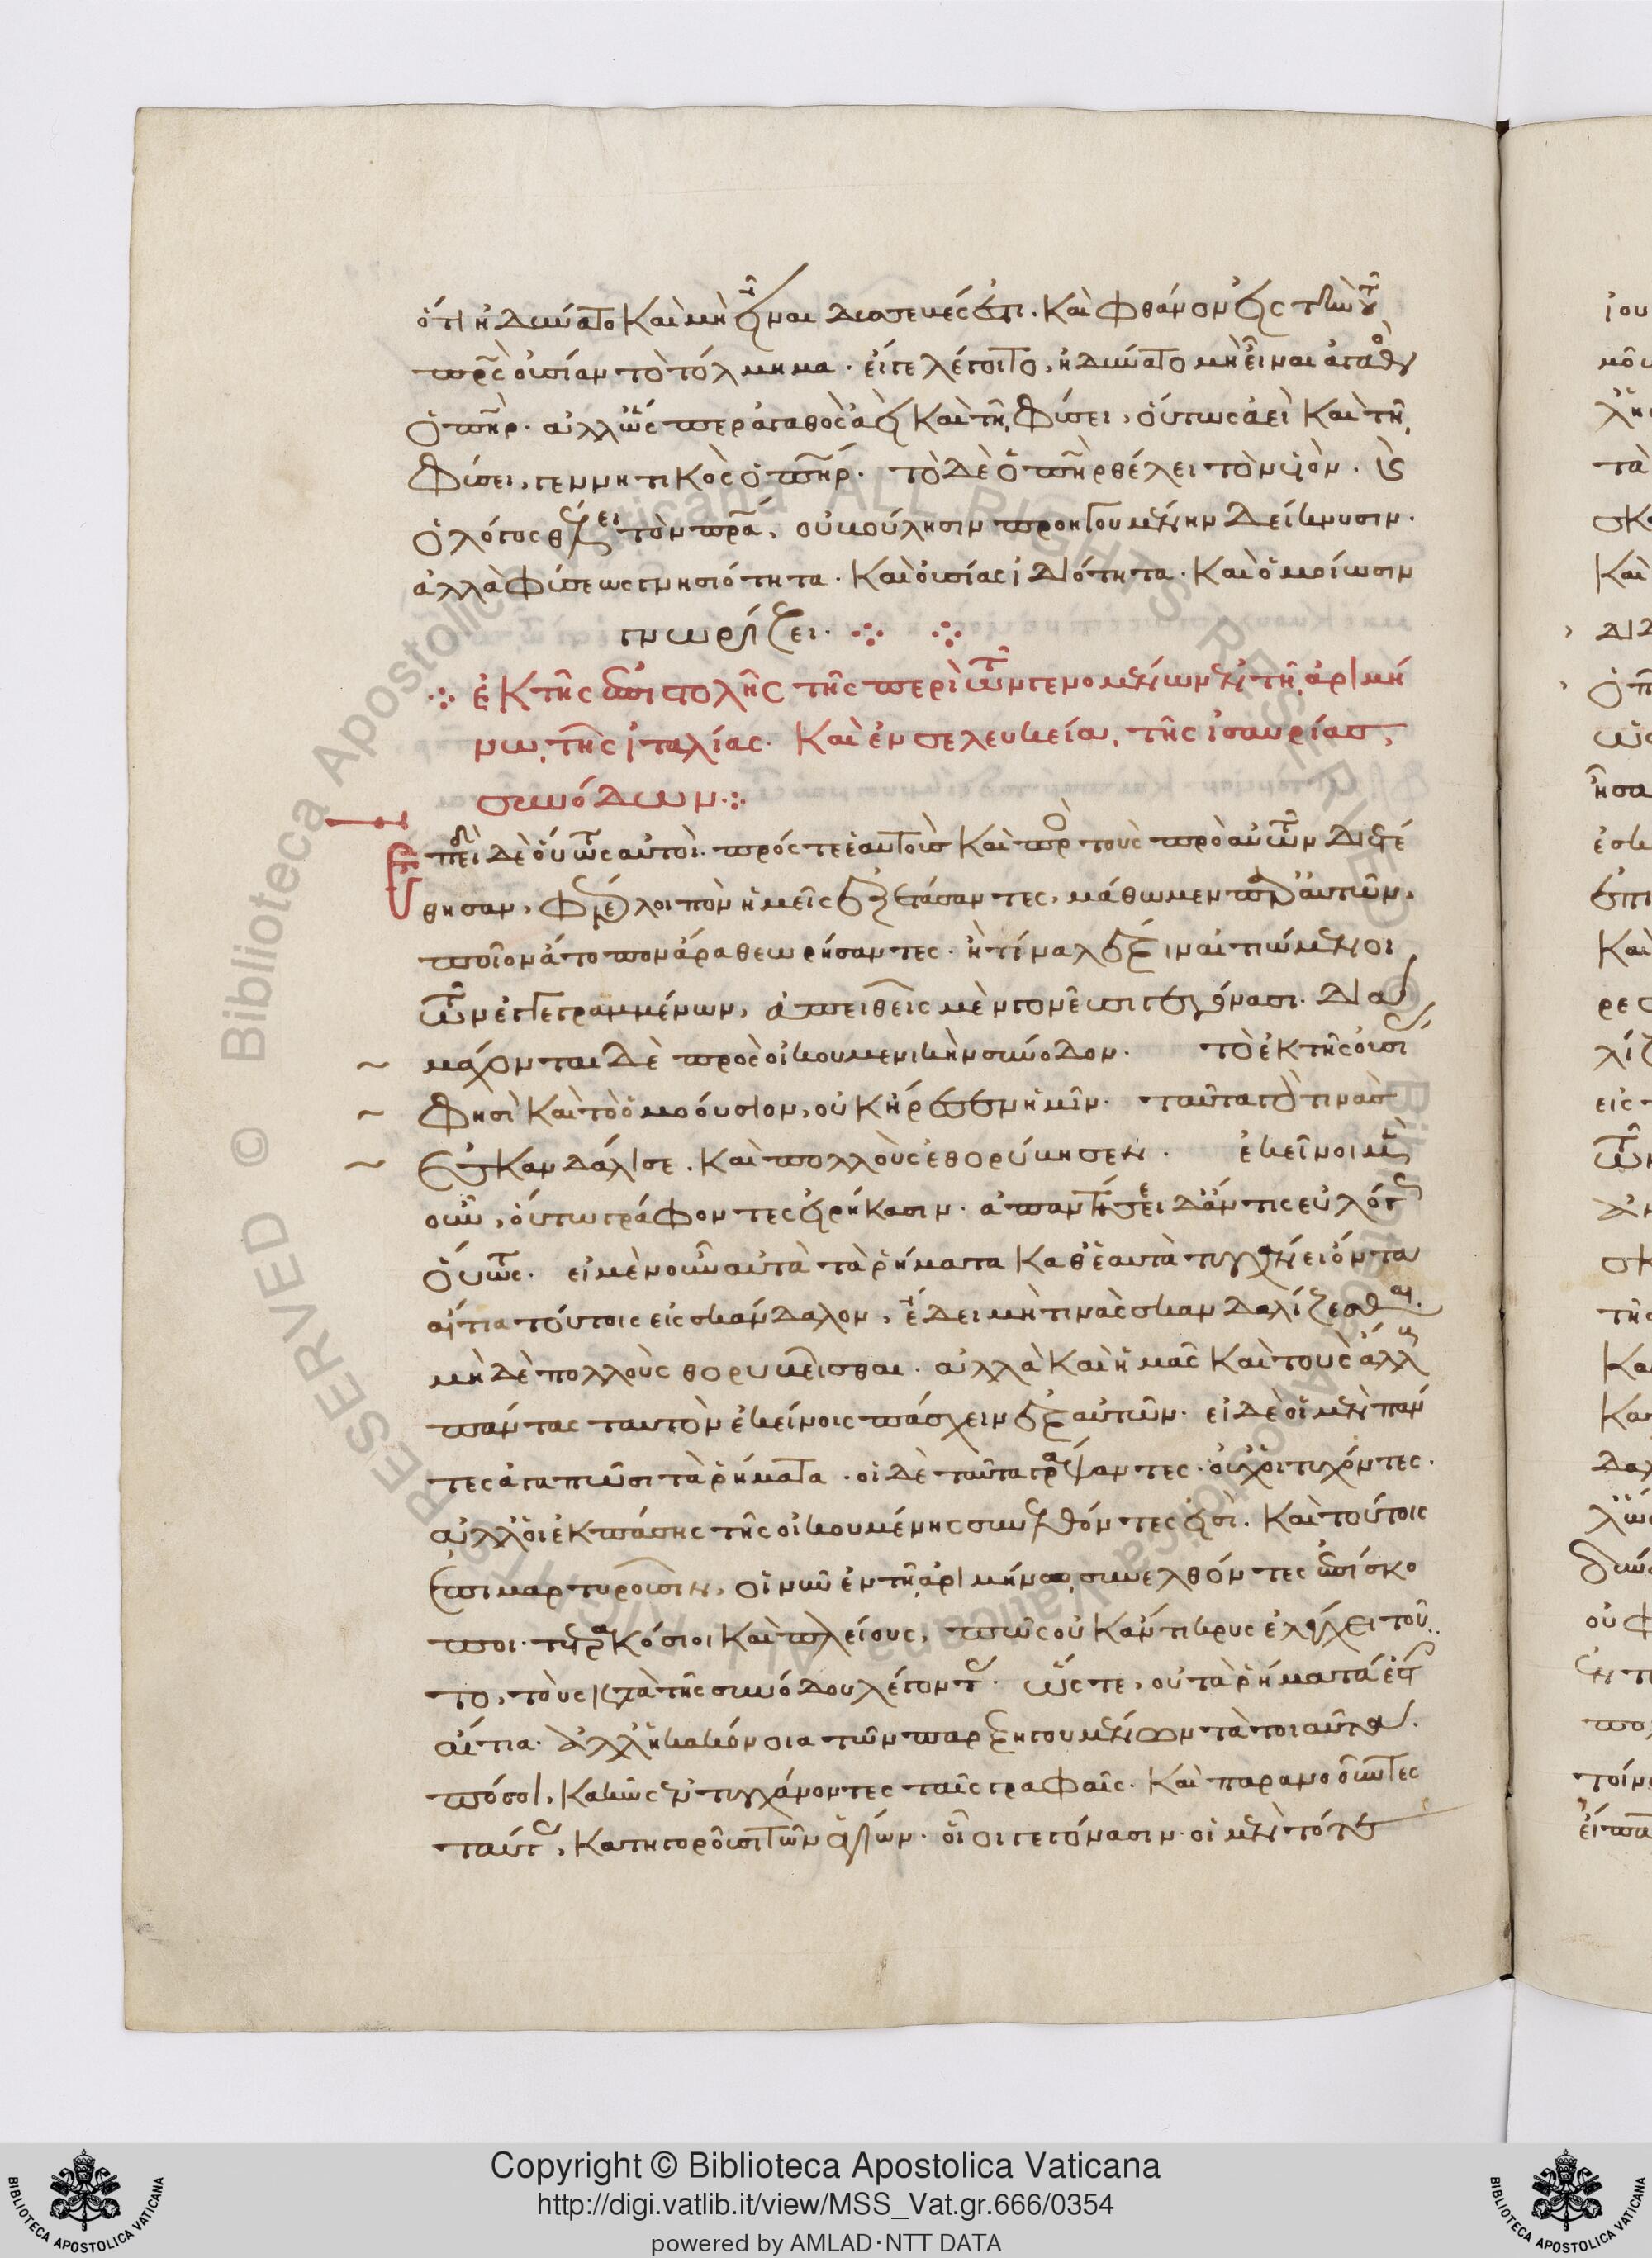 ὅτι ἠδύνατο καὶ μὴ εἶναι δυσσεβές ἐστι. καὶ φθάνον εἰς τὴν τοῦ
πρὸς οὐσίαν τὸ τόλμημα. εἴτε λέγοιτο, ἠδύνατο μὴ εἶναι ἀγαθὸς
ὁ πατήρ. ἀλλ' ὥσπερ ἀγαθὸς ἀεὶ καὶ τῇ φύσει, οὕτως ἀεὶ καὶ τῇ
φύσει, γεννητικὸς ὁ πατήρ. τὸ δὲ ὁ πατὴρ θέλει τὸν υἱὸν. καὶ
ὁ λόγος θέλει τὸν πατέρα, οὐ βούλησιν προηγουμένην δείκνυσιν.
ἀλλὰ φύσεως γνησιότητα. καὶ οὐσίας ἰδιότητα. καὶ ὁμοίωσιν
γνωρίζει.
ἐκ τῆς ἐπιστολῆς τῆς περὶ τῶν γενομένων ἐν τῇ ἀριμή
νῳ τῆς ἰταλίας. καὶ ἐν σελευκείᾳ, τῆς ἰσαυρίας,
συνόδων
Ἐπειδὴ δὲ οὕτως αὐτοὶ πρός τε ἑαυτοὺς καὶ πρὸς τοὺς πρὸ αὐτῶν διετέ
θησαν, φέρε λοιπὸν ἡμεῖς ἐξετάσαντες, μάθωμεν παρ' αὐτῶν,
ποῖον ἄτοπον ἄρα θεωρήσαντες. ἢ τίνα λέξιν αἰτιώμενοι
τῶν ἐγγεγραμμένων, ἀπειθεῖς μὲν γονεῦσι γεγόνασι. δια
μάχονται δὲ πρὸς οἰκουμενικὴν σύνοδον. τὸ ἐκ τῆς οὐσίας
φησὶ καὶ τὸ ὁμοούσιον, οὐκ ἤρεσεν ἡμῖν. ταῦτα γὸ τινὰς
ἐσκανδάλισε. καὶ πολλοὺς ἐθορύβησεν. ἐκεῖνοι μὲν
οὖν, οὕτω γράφοντες εἰρήκασιν. ἀπαντήσειε δ' ἄν τις εὐλόγως
οὕτως. εἰ μὲν οὖν αὐτὰ τὰ ῥήματα καθ' ἑαυτὰ τυγχάνει ὄντα
αἴτια τούτοις εἰς σκάνδαλον, ἔδει μὴ τινὰς σκανδαλίζεσθαι.
μὴ δὲ πολλοὺς θορυβεῖσθαι. ἀλλὰ καὶ ἡμᾶς καὶ τοὺς ἄλλους
πάντας ταυτὸν ἐκείνοις πάσχειν ἐξ αὐτῶν. εἰ δὲ οἱ μὲν πάν
τες ἀγαπῶσι τὰ ῥήματα. οἱ δὲ ταῦτα γράψαντες. οὐχ οἱ τυχόντες.
ἀλλ' οἱ ἐκ πάσης τῆς οἰκουμένης συνελθόντες εἰσὶ. καὶ τούτοις
ἐπιμαρτυροῦσιν, οἱ νῦν ἐν τῇ ἀριμήνῳ συνελθόντες ἐπίσκο
ποι τετρακόσιοι καὶ πλείους, πῶς οὐκ ἄντικρυς ἐλέγχει τοῦ
το, τοὺς κατὰ τῆς συνόδου λέγοντας. ὥστε, οὐ τὰ ῥήματά ἐστιν
αἴτια. ἀλλ' ἡ κακόνοια τῶν παρεξηγουμένων τὰ τοιαῦτα.
πόσοι, κακῶς ἐντυγχάνοντες ταῖς γραφαῖς. καὶ παρανοοῦντες
ταύτας, κατηγοροῦσι τῶν ἁγίων. οἷοι γεγόνασιν οἱ μὲν τότε
Copyright © Biblioteca Apostolica Vaticana
http://digi.vatlib.it/view/MSS_Vat.gr.666/0354
powered by AMLAD·NTT DATA